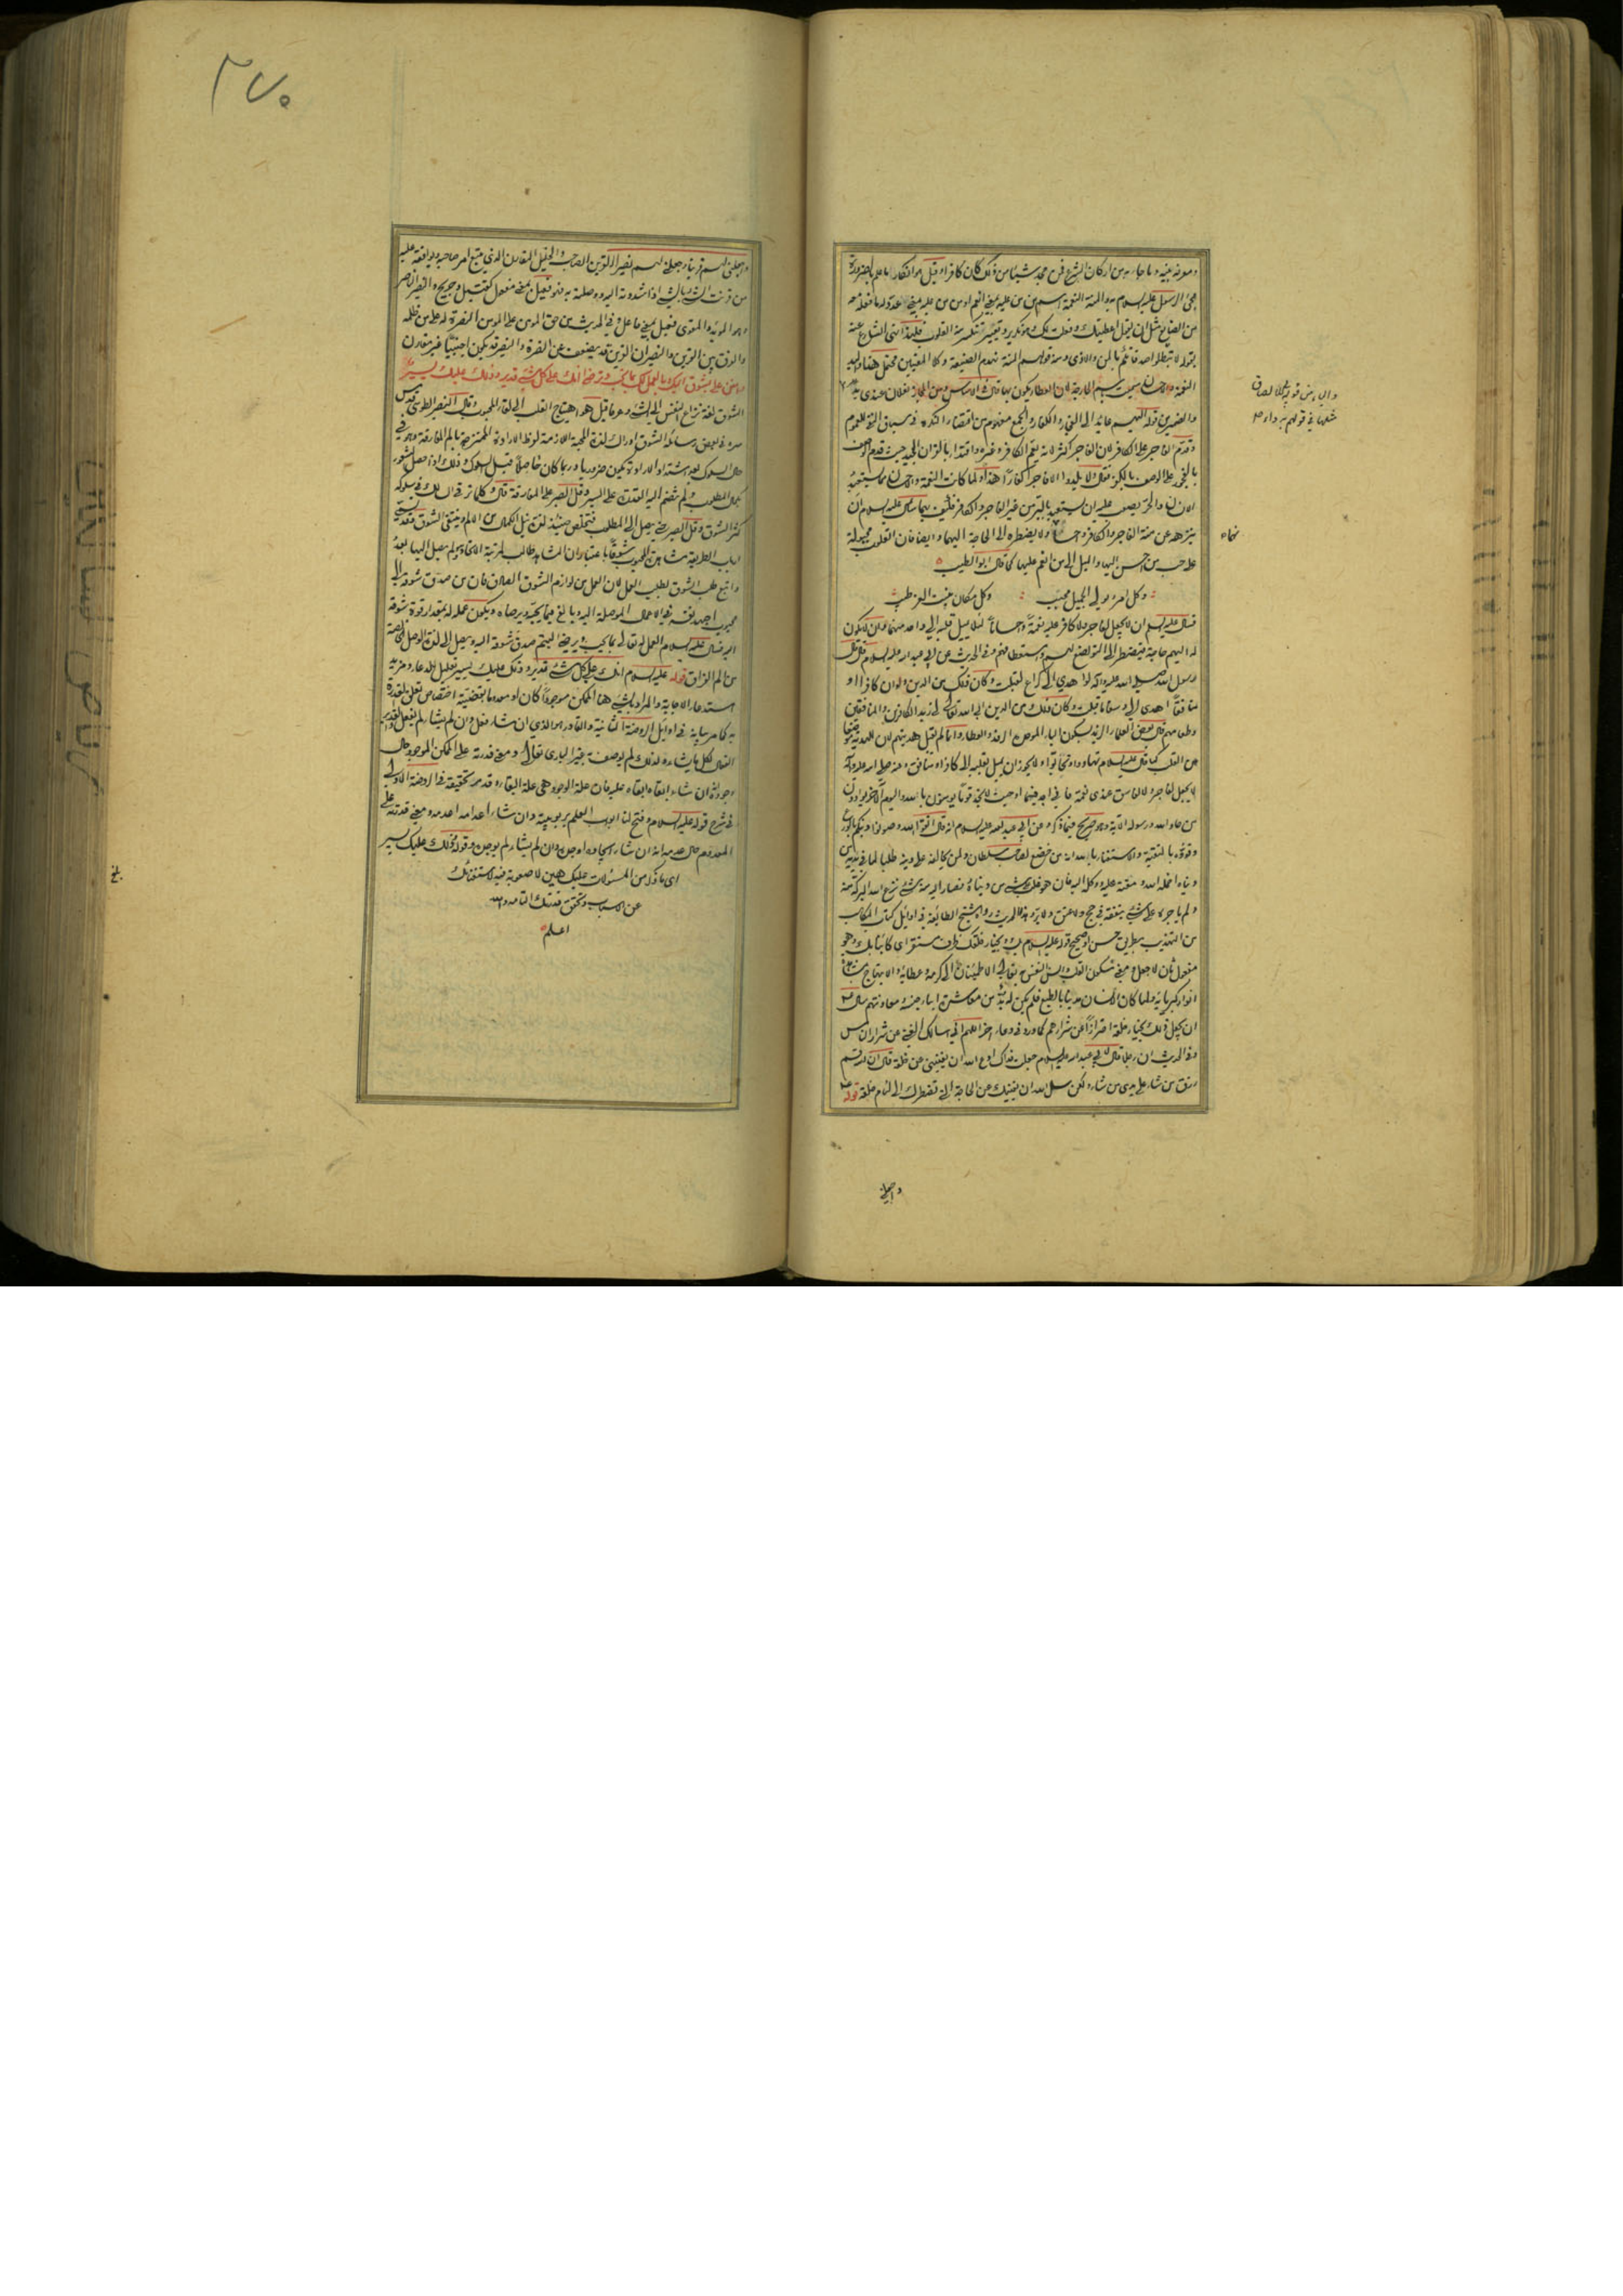 ومعرفة نبيه وما جاء به من اركان الشرع فمن جحد شيئا من ذلك كان كافرا وقيل هو انكار ما علم بالضرورة
مجئ الرسول عليه السلام به والمنة النعمة اسم من من عليه بمعنى انعم او من من عليه بمعنى عدد له ما فعله معه
من الصنائع مثل ان يقول اعطيتك وفعلت لك وهو تكدير وتعيير تنكسر منه القلوب فلهذا نهى الشارع عنه
بقوله لا تبطلوا صدقاتكم بالمن والاذى ومنه قولهم المنة تهدم الصنيعة وكلا المعنيين محتمل هنا واليد
النعمة والاحسان سميت باسم الجارحة لان العطاء يكون بها قال في الاساس ومن المجاز لفلان عندي يد
والضمير في قوله اليهم عائد الى الفجار والكفار والجمع مفهوم من اقتضاء النكرة في سياق النفي للعموم
وقدم الفاجر على الكافر لان الفاجر اكثر لانه يعم الكافر وغيره واقتداء بالقران المجيد حيث قدم الوصف
بالفجور على الوصف بالكفر فقال ولا يلدوا الا فاجرا كفارا هذا ولما كانت النعمة والاحسان مما يستعبد
الانسان والحر يصعب عليه ان يستعبد بالبر من غير الفاجر والكافر فكيف بهما سأل عليه السلام ان
ينزهه عن منة الفاجر والكافر واحسانهما ولا يضطره الى الحاجة اليهما وايضا فان القلوب مجبولة
على حب من احسن اليها والميل الى من انعم عليها كما قال ابو الطيب
وكل امرء يولي الجميل محبب وكل مكان ينبت العز طيب
فسأل عليه السلام ان لا يجعل لفاجر ولا كافر عليه نعمة واحسانا لئلا يميل قلبه الى واحد منهما وان لا يكون
له اليهم حاجة فيضطر الى التواضع لهم واستعطافهم وفي الحديث عن ابي عبد الله عليه السلام قال قال
رسول الله صلى الله عليه وآله لو اهدي الى كراع لقبلت وكان ذلك من الدين ولو ان كافرا او
منافقا اهدى الى وسقا ما قبلت وكان ذلك من الدين ابى الله تعالى لي زبد الكافرين والمنافقين
وطعامهم قال بعض العلماء الزبد بسكون الباء الموحدة الرفد والعطاء وانما لم يقبل هديتهم لان للهدية موضعا
من القلب كما قال عليه السلام تهادوا تحابوا ولا يجوز ان يميل بقلبه الى كافر او منافق وعنه صلى الله عليه وآله
لا يجعل لفاجر ولا لفاسق عندي نعمة فاني اجد فيما اوحيت لا تجد قوما يؤمنون بالله واليوم الآخر يوادون
من حاد الله ورسوله الآية وهو صريح فيما ذكر وعن ابي عبد الله عليه السلام انه قال اتقوا الله وصونوا دينكم بالورع
وقووه بالتقية والاستغناء بالله انه من خضع لصاحب سلطان ولمن يخالفه على دينه طلبا لما في يديه من
دنياه اخمله الله ومقته عليه ووكله اليه فان هو غلب على شيء من دنياه فصار اليه منه شيء نزع الله البركة منه
ولم ياجره على شيء ينفقه في حج ولا عتق ولا بر وهذا الحديث رواه شيخ الطائفة في اوائل كتاب المكاسب
من التهذيب بطريق حسن او صحيح قوله عليه السلام بك وبخيار خلقك ظرف مستقر اي كائنا بك وهو
مفعول ثان لاجعل ومعنى سكون القلب وانس النفس به تعالى الاطمئنان الى كرمه وعطائه والابتهاج بمشاهدة
انوار كبريائه ولما كان الانسان مدنيا بالطبع فلم يكن له بد من معاشرة ابناء جنسه ومعاونتهم سأل عم
ان يجعل ذلك بخيار خلقه احترازا عن شرارهم كما ورد في دعاء اخر اللهم اني اسالك الغنى عن شرار الناس
وفي الحديث ان رجلا قال لابي عبد الله عليه السلام جعلت فداك ادع الله ان يغنيني عن خلقه قال ان الله قسم
رزق من شاء على يدي من شاء ولكن سل الله ان يغنيك عن الحاجة التي تضطرك الى لئام خلقه قوله عم
واجعلني
نهاه
٢٧٠
واجعلني لهم قرينا واجعلني لهم نصيرا القرين الصاحب والخليل المقارن الذي يتبع امر صاحبه ويوافقه عليه
من قرنت الشيء بالشيء اذا شددته اليه ووصلته به فهو فعيل بمعنى مفعول كقتيل وجريح والنصير الناصر
وهو المؤيد والمقوي فعيل بمعنى فاعل وفي الحديث من حق المؤمن على المؤمن النصرة له على من ظلمه
والفرق بين القرين والنصير ان القرين قد يضعف عن النصرة والنصير قد يكون اجنبيا غير مقارن
وامنن علي بشوق اليك وبالعمل لك بما تحب وترضى انك على كل شيء قدير وذلك عليك يسير
الشوق لغة نزاع النفس الى الشيء وعرفا قيل هو اهتياج القلب الى لقاء المحبوب وقال النصير الطوسي قدس
سره في بعض رسائله الشوق ادراك لذة المحبة اللازمة لفرط الارادة الممتزجة بالم المفارقة وهو في
حال السلوك بعد اشتداد الارادة يكون ضروريا وربما كان حاصلا قبل السلوك وذلك اذا حصل الشعور
بكمال المطلوب ولم ينضم اليه القدرة على السير وقل الصبر على المفارقة قال وكلما ترقى السالك في سلوكه
كثر الشوق وقل الصبر حتى يصل الى المطلوب فتخلص حينئذ لذة نيل الكمال من الالم وينتفي الشوق وقد يسمي
ارباب الطريقة مشاهدة المحبوب شوقا باعتبار ان المشاهد طالب لمرتبة الاتحاد ولم يصل اليها بعد
واتبع طلب الشوق بطلب العمل لان العمل من لوازم الشوق الصادق فان من صدق شوقه الى
محبوب اجهد نفسه في الاعمال الموصلة اليه وبالغ فيما يحبه ويرضاه ويكون عمله له بمقدار قوة شوقه
اليه فسأل عليه السلام العمل له تعالى بما يحب ويرضى ليتم صدق شوقه اليه ويصل الى لذة الوصل الخالصة
من الم الفراق قوله عليه السلام انك على كل شيء قدير وذلك عليك يسير تعليل للدعاء ومزيد
استدعاء للاجابة والمراد بالشيء هنا الممكن موجودا كان او معدوما بقضية اختصاص تعلق القدرة
به كما مر بيانه في اوائل الروضة الثانية والقادر هو الذي ان شاء فعل وان لم يشأ لم يفعل والقدير
الفعال لكل ما يشاء ولذلك لم يوصف به غير الباري تعالى ومعنى قدرته على الممكن الموجود حال
وجوده ان شاء ابقاه ابقاه عليه فان علة الوجود هي علة البقاء وقد مر تحقيقه في الروضة الاولى
في شرح قوله عليه السلام وفتح لنا ابواب العلم بربوبيته وان شاء اعدامه اعدمه ومعنى قدرته على
المعدوم حال عدمه انه ان شاء ايجاده اوجده وان لم يشأ لم يوجده وقوله وذلك عليك يسير
اي ما ذكر من المسئولات عليك هين لا صعوبة فيه لاستغنائك
عن الاسباب وتحقق قدرتك التامة والله
اعلم